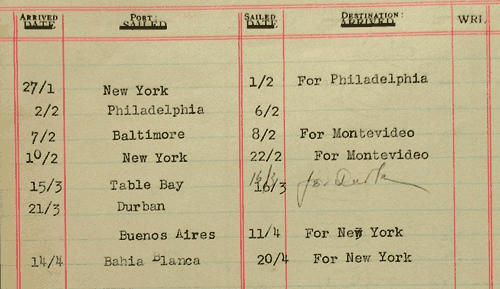 ARRIVED PORT: SAILED DESTINATION: WRI.
DATE SAILED DATE ARRIVED
27/1 New York 1/2 For Philadelphia
2/2 Philadelphia 6/2
7/2 Baltimore 8/2 For Montevideo
10/2 New York 22/2 For Montevideo
15/3 Table Bay 16/3 for Durban
21/3 Durban
Buenos Aires 11/4 For New York
14/4 Bahia Blanca 20/4 For New York